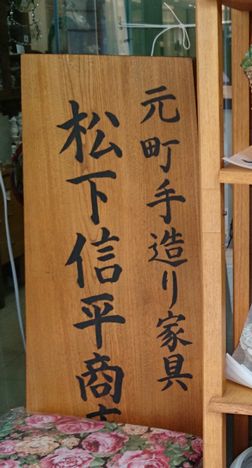 元町手造り家具
松下信平商